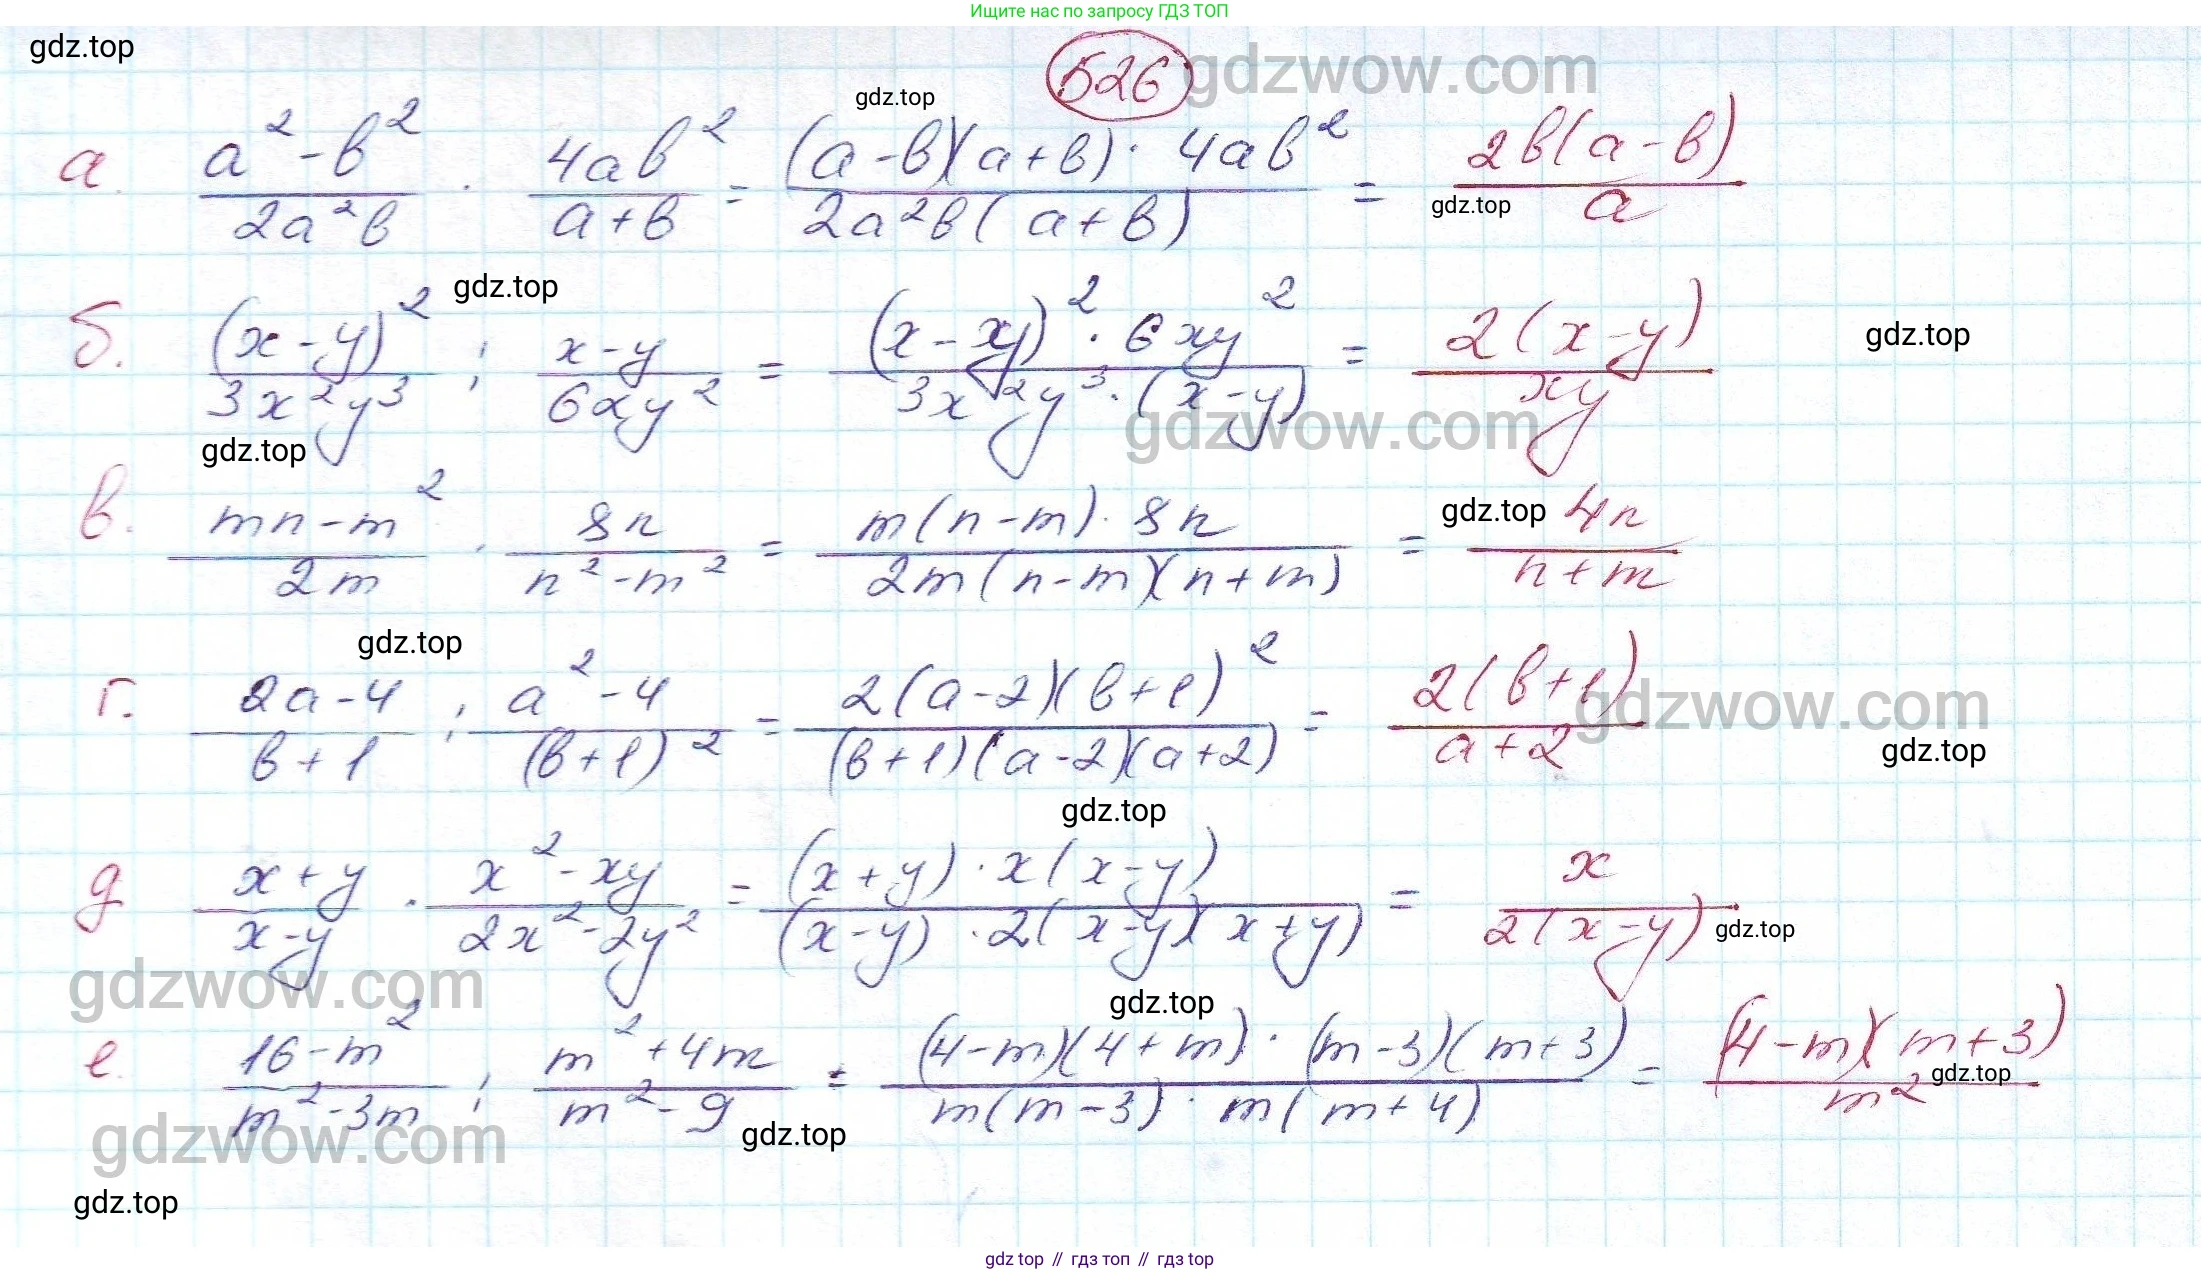 Ищите нас по запросу ГДЗ ТОП
gdz.top
526
gdzwow.com
gdz.top
а. (a² - b²)/(2a²b) · (4ab²)/(a+b) = ((a-b)(a+b) · 4ab²)/(2a²b(a+b)) = (2b(a-b))/a
gdz.top
gdz.top
б. (x-y)²/(3x²y³) : (x-y)/(6xy²) = ((x-xy)² · 6xy²)/(3x²y³ · (x-y)) = (2(x-y))/(xy)
gdz.top
gdzwow.com
gdz.top
gdz.top
в. (mn - m²)/(2m) · (8n)/(n² - m²) = (m(n-m) · 8n)/(2m(n-m)(n+m)) = (4n)/(n+m)
gdz.top
г. (2a-4)/(b+1) : (a²-4)/(b+1)² = (2(a-2)(b+1)²)/((b+1)(a-2)(a+2)) = (2(b+1))/(a+2)
gdzwow.com
gdz.top
gdz.top
д (x+y)/(x-y) · (x² - xy)/(2x² - 2y²) = ((x+y) · x(x-y))/((x-y) · 2(x-y)(x+y)) = x/(2(x-y))
gdz.top
gdzwow.com
gdz.top
е. (16-m²)/(m²-3m) : (m²+4m)/(m²-9) = ((4-m)(4+m) · (m-3)(m+3))/(m(m-3) · m(m+4)) = ((4-m)(m+3))/m²
gdz.top
gdzwow.com
gdz.top
gdz.top
gdz top // гдз топ // gdz top